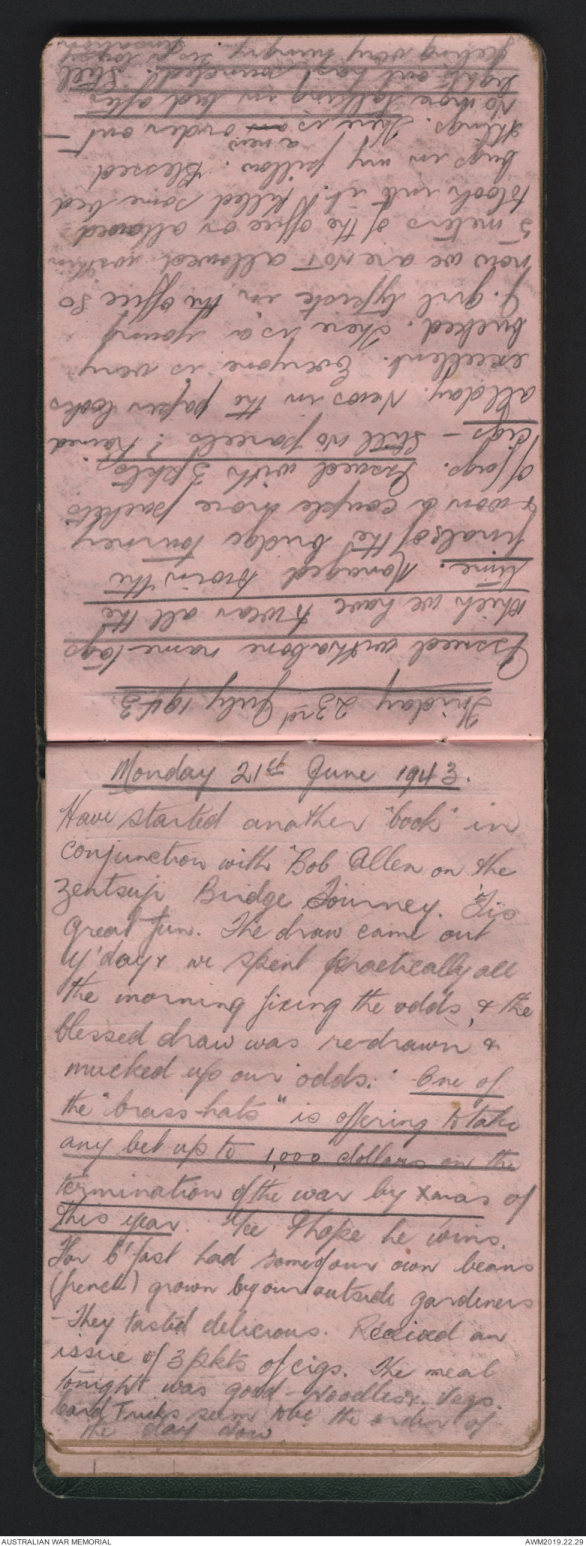 Friday 23rd July 1943
Issued with bone name-tags
which we have to wear all the
time. Managed to win the
finals of the bridge tourney
& won a couple more packets
of cigs. Issued with 3 pkts
cigs – Still no parcels? Rained
all day. News in the paper looks
excellent. Everyone is very
bucked. There is a young
J. girl typiste in the office so
now we are NOT allowed within
5 meters of the office or allowed
to look into it! Killed some bed
bugs in my pillow. Blessed
things. There is a new order out –
No more talking in bed after
lights out has sounded. Still
feeling very hungry
Monday 21st June 1943.
Have started another "book" in
conjunction with Bob Allen on the
Zentsuji Bridge Tourney. Tis
great fun. The draw came out
y'day & we spent practically all
the morning fixing the odds, & the
blessed draw was re-drawn &
mucked up our odds. One of
the "brass-hats" is offering to take
any bet up to 1,000 dollars on the
termination of the war by Xmas of
this year. We I hope he wins.
For b'fast had some of our own beans
(french) grown by our outside gardeners
– They tasted delicious. Received an
issue of 3 pkts of cigs. The meal
tonight was good – noodles & Vegs.
Card Tricks seem to be the order of
the day now
AUSTRALIAN WAR MEMORIAL
AWM2019.22.29